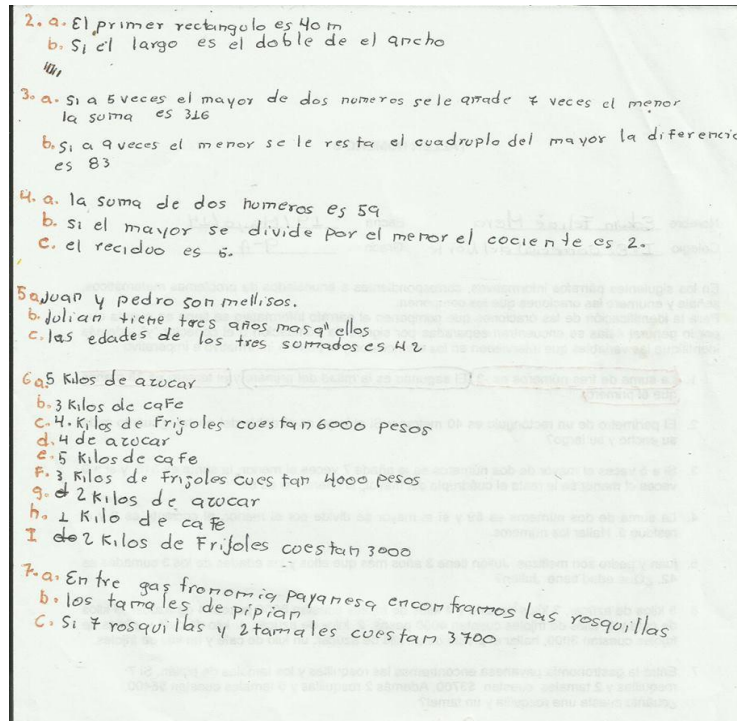 2. a. El primer rectangulo es 40 m
b. Si el largo es el doble de el ancho
3. a. Si a 5 veces el mayor de dos numeros sele añade 7 veces el menor
la suma es 316
b. Si a 9 veces el menor se le resta el cuadruplo del mayor la diferencia
es 83
4. a. la suma de dos numeros es 59
b. si el mayor se divide por el menor el cociente es 2.
c. el reciduo es 5.
5 a. Juan y pedro son mellisos.
b. Julian tiene tres años mas q" ellos
c. las edades de los tres sumados es 42
6 a. 5 Kilos de azucar
b. 3 Kilos de cafe
c. 4. Kilos de frigoles cuestan 6000 pesos
d. 4 de azucar
e. 5 Kilos de cafe
F. 3 Kilos de frijoles cuestan 4000 pesos
g. 2 Kilos de azucar
h. 1 Kilo de cafe
I 2 Kilos de Frijoles cuestan 3000
7. a. Entre gastronomia payanesa encontramos las rosquillas
b. los tamales de pipian
c. Si 7 rosquillas y 2 tamales cuestan 3700